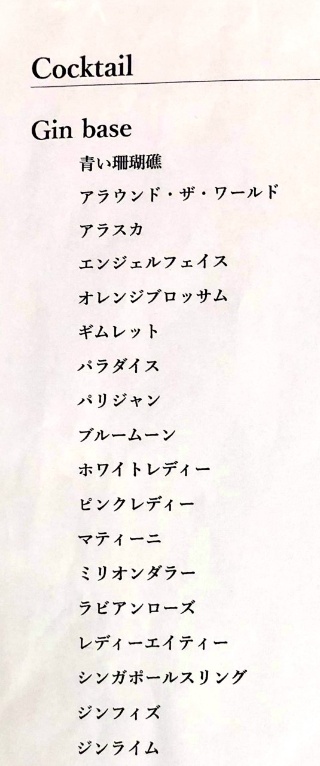 Cocktail
Gin base
青い珊瑚礁
アラウンド・ザ・ワールド
アラスカ
エンジェルフェイス
オレンジブロッサム
ギムレット
パラダイス
パリジャン
ブルームーン
ホワイトレディー
ピンクレディー
マティーニ
ミリオンダラー
ラビアンローズ
レディーエイティー
シンガポールスリング
ジンフィズ
ジンライム